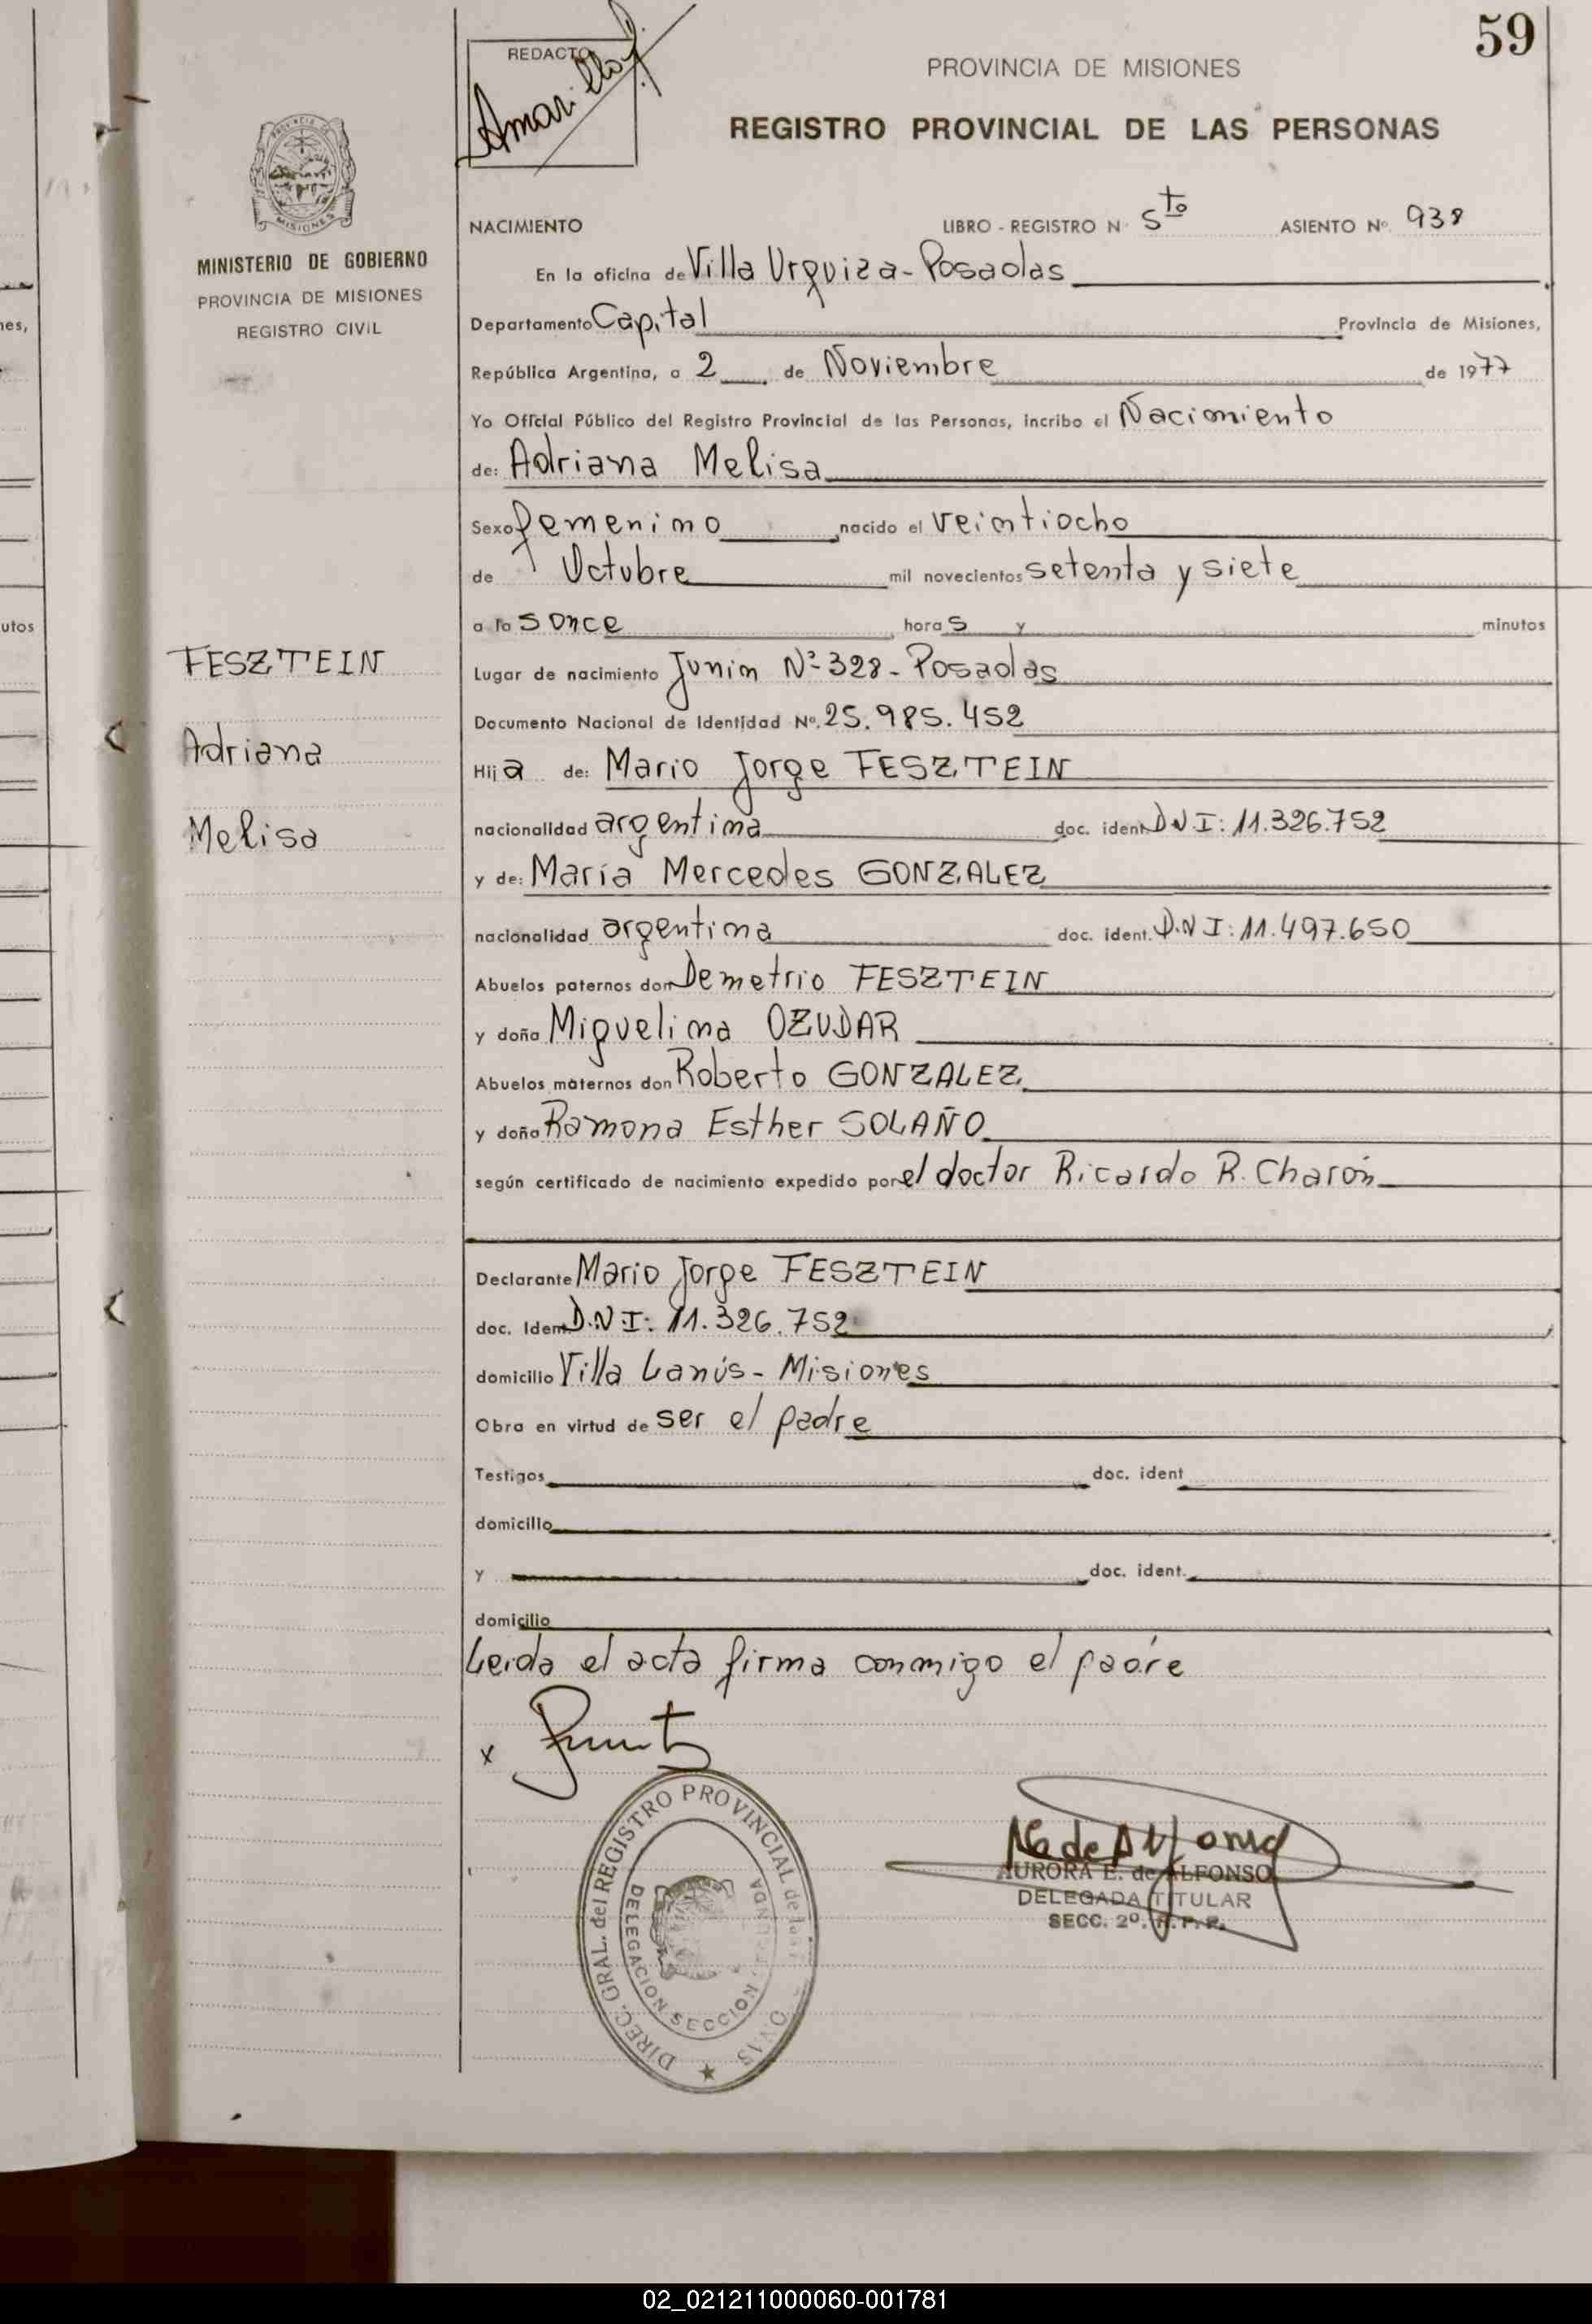 59
REDACTO
Amarilla
PROVINCIA DE MISIONES
REGISTRO PROVINCIAL DE LAS PERSONAS
MISIONES
MINISTERIO DE GOBIERNO
PROVINCIA DE MISIONES
REGISTRO CIVIL
NACIMIENTO LIBRO - REGISTRO N· 5to ASIENTO Nº 938
En la oficina de Villa Urquiza - Posadas
Departamento Capital Provincia de Misiones,
República Argentina, a 2 de Noviembre de 1977
Yo Oficial Público del Registro Provincial de las Personas, incribo el Nacimiento
de: Adriana Melisa
Sexo femenino nacido el veintiocho
de Octubre mil novecientos setenta y siete
a las once horas y minutos
Lugar de nacimiento Junin Nº 328 - Posadas
Documento Nacional de Identidad Nº. 25.985.452
Hija de: Mario Jorge FESZTEIN
nacionalidad argentina doc. ident DNI: 11.326.752
y de: María Mercedes GONZALEZ
nacionalidad argentina doc. ident. D.N I: 11.497.650
Abuelos paternos don Demetrio FESZTEIN
y doña Miguelina OZUDAR
Abuelos maternos don Roberto GONZALEZ
y doña Ramona Esther SOLAÑO
según certificado de nacimiento expedido por el doctor Ricardo R. Charón
Declarante Mario Jorge FESZTEIN
doc. Ident D.N I: 11.326.752
domicilio Villa Lanús - Misiones
Obra en virtud de ser el padre
Testigos doc. ident
domicilio
y doc. ident.
domicilio
Leida el acta firma conmigo el padre
x
FESZTEIN
Adriana
Melisa
DIREC. GRAL. del REGISTRO PROVINCIAL de las
DELEGACION SECCION
AURORA E. de ALFONSO
DELEGADA TITULAR
SECC. 2º. R.P.P.
nes,
utos
02_021211000060-001781